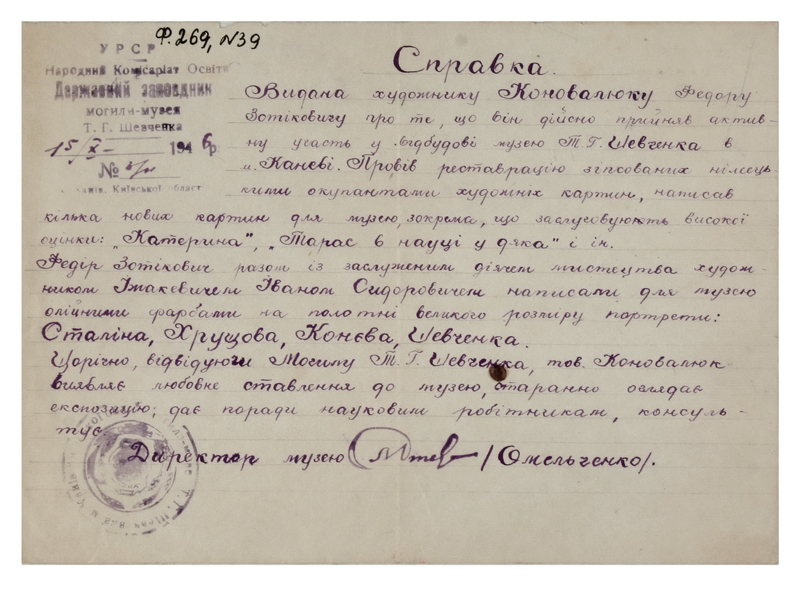 Ф. 269, №39
УРСР
Народний Комісаріат Освіти
Державний заповідник
могили-музея
Т. Г. Шевченка
15/XI- 1946 р.
№
Канів, Київської област
Справка.
Видана художнику Коновалюку Федору
Зотіковичу про те, що він дійсно прийняв актив-
ну участь у відбудові музею Т. Г. Шевченка в
м. Каневі. Провів реставрацію зіпсованих німець-
кими окупантами художніх картин, написав
кілька нових картин для музею, зокрема, що заслуговують високої
оцінки: „Катерина", „Тарас в науці у дяка" і ін.
Федір Зотікович разом із заслуженим діячем мистецтва худож-
ником Їжакевичем Іваном Сидоровичем написали для музею
олійними фарбами на полотні великого розміру портрети:
Сталіна, Хрущова, Конєва, Шевченка.
Щорічно, відвідуючи Могилу Т. Г. Шевченка, тов. Коновалюк
виявляє любовне ставлення до музею, старанно оглядає
експозицію, дає поради науковим робітникам, консуль-
тує.
Директор музею /Омельченко/.